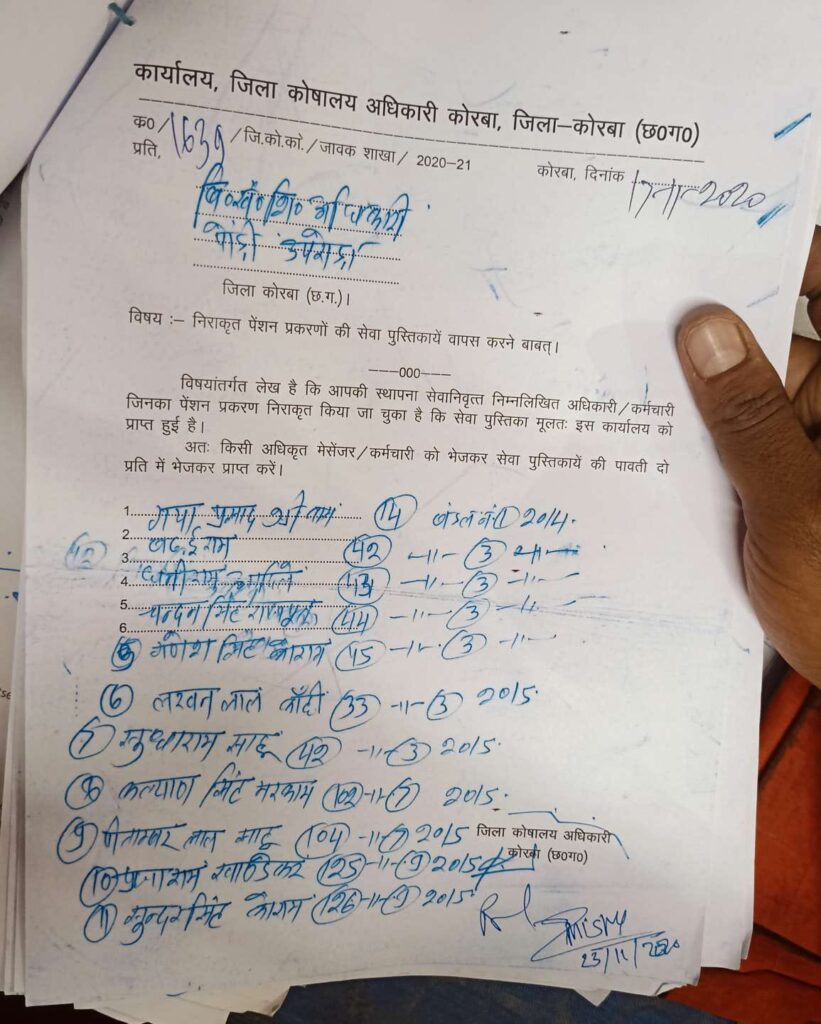 कार्यालय, जिला कोषालय अधिकारी कोरबा, जिला–कोरबा (छ0ग0)
क0/1639/जि.को.का./जावक शाखा/ 2020-21 कोरबा, दिनांक 17-11-2020
प्रति,
वि०खं०शि० अधिकारी
पोंड़ी उपरोड़ा
जिला कोरबा (छ.ग.)।
विषय :– निराकृत पेंशन प्रकरणों की सेवा पुस्तिकायें वापस करने बाबत्।
———000———
विषयांतर्गत लेख है कि आपकी स्थापना सेवानिवृत्त निम्नलिखित अधिकारी/कर्मचारी
जिनका पेंशन प्रकरण निराकृत किया जा चुका है कि सेवा पुस्तिका मूलतः इस कार्यालय को
प्राप्त हुई है।
अतः किसी अधिकृत मेसेंजर/कर्मचारी को भेजकर सेवा पुस्तिकायें की पावती दो
प्रति में भेजकर प्राप्त करें।
1. गया प्रसाद 14 बंडल नं 1 2014.
2. बदई राम 42 -11- 3 -11-
3. धनीराम 43 -11- 3 -11-
4. चन्दन सिंह राजपूत 44 -11- 3 -11-
5.
6.
5 गणेश सिंह कोराम 45 -11- 3 -11-
6 लखन लाल 33 -11- 3 2015.
7 सुधाराम साहू 42 -11- 3 2015.
8 कल्याण सिंह मरकाम 102 -11- 7 2015.
9 पीताम्बर लाल साहू 104 -11- 7 2015
जिला कोषालय अधिकारी
कोरबा (छ0ग0)
10 खाण्डेकर 125 -11- 9 2015
11 सुन्दर सिंह कोराम 126 -11- 9 2015
23/11/2020